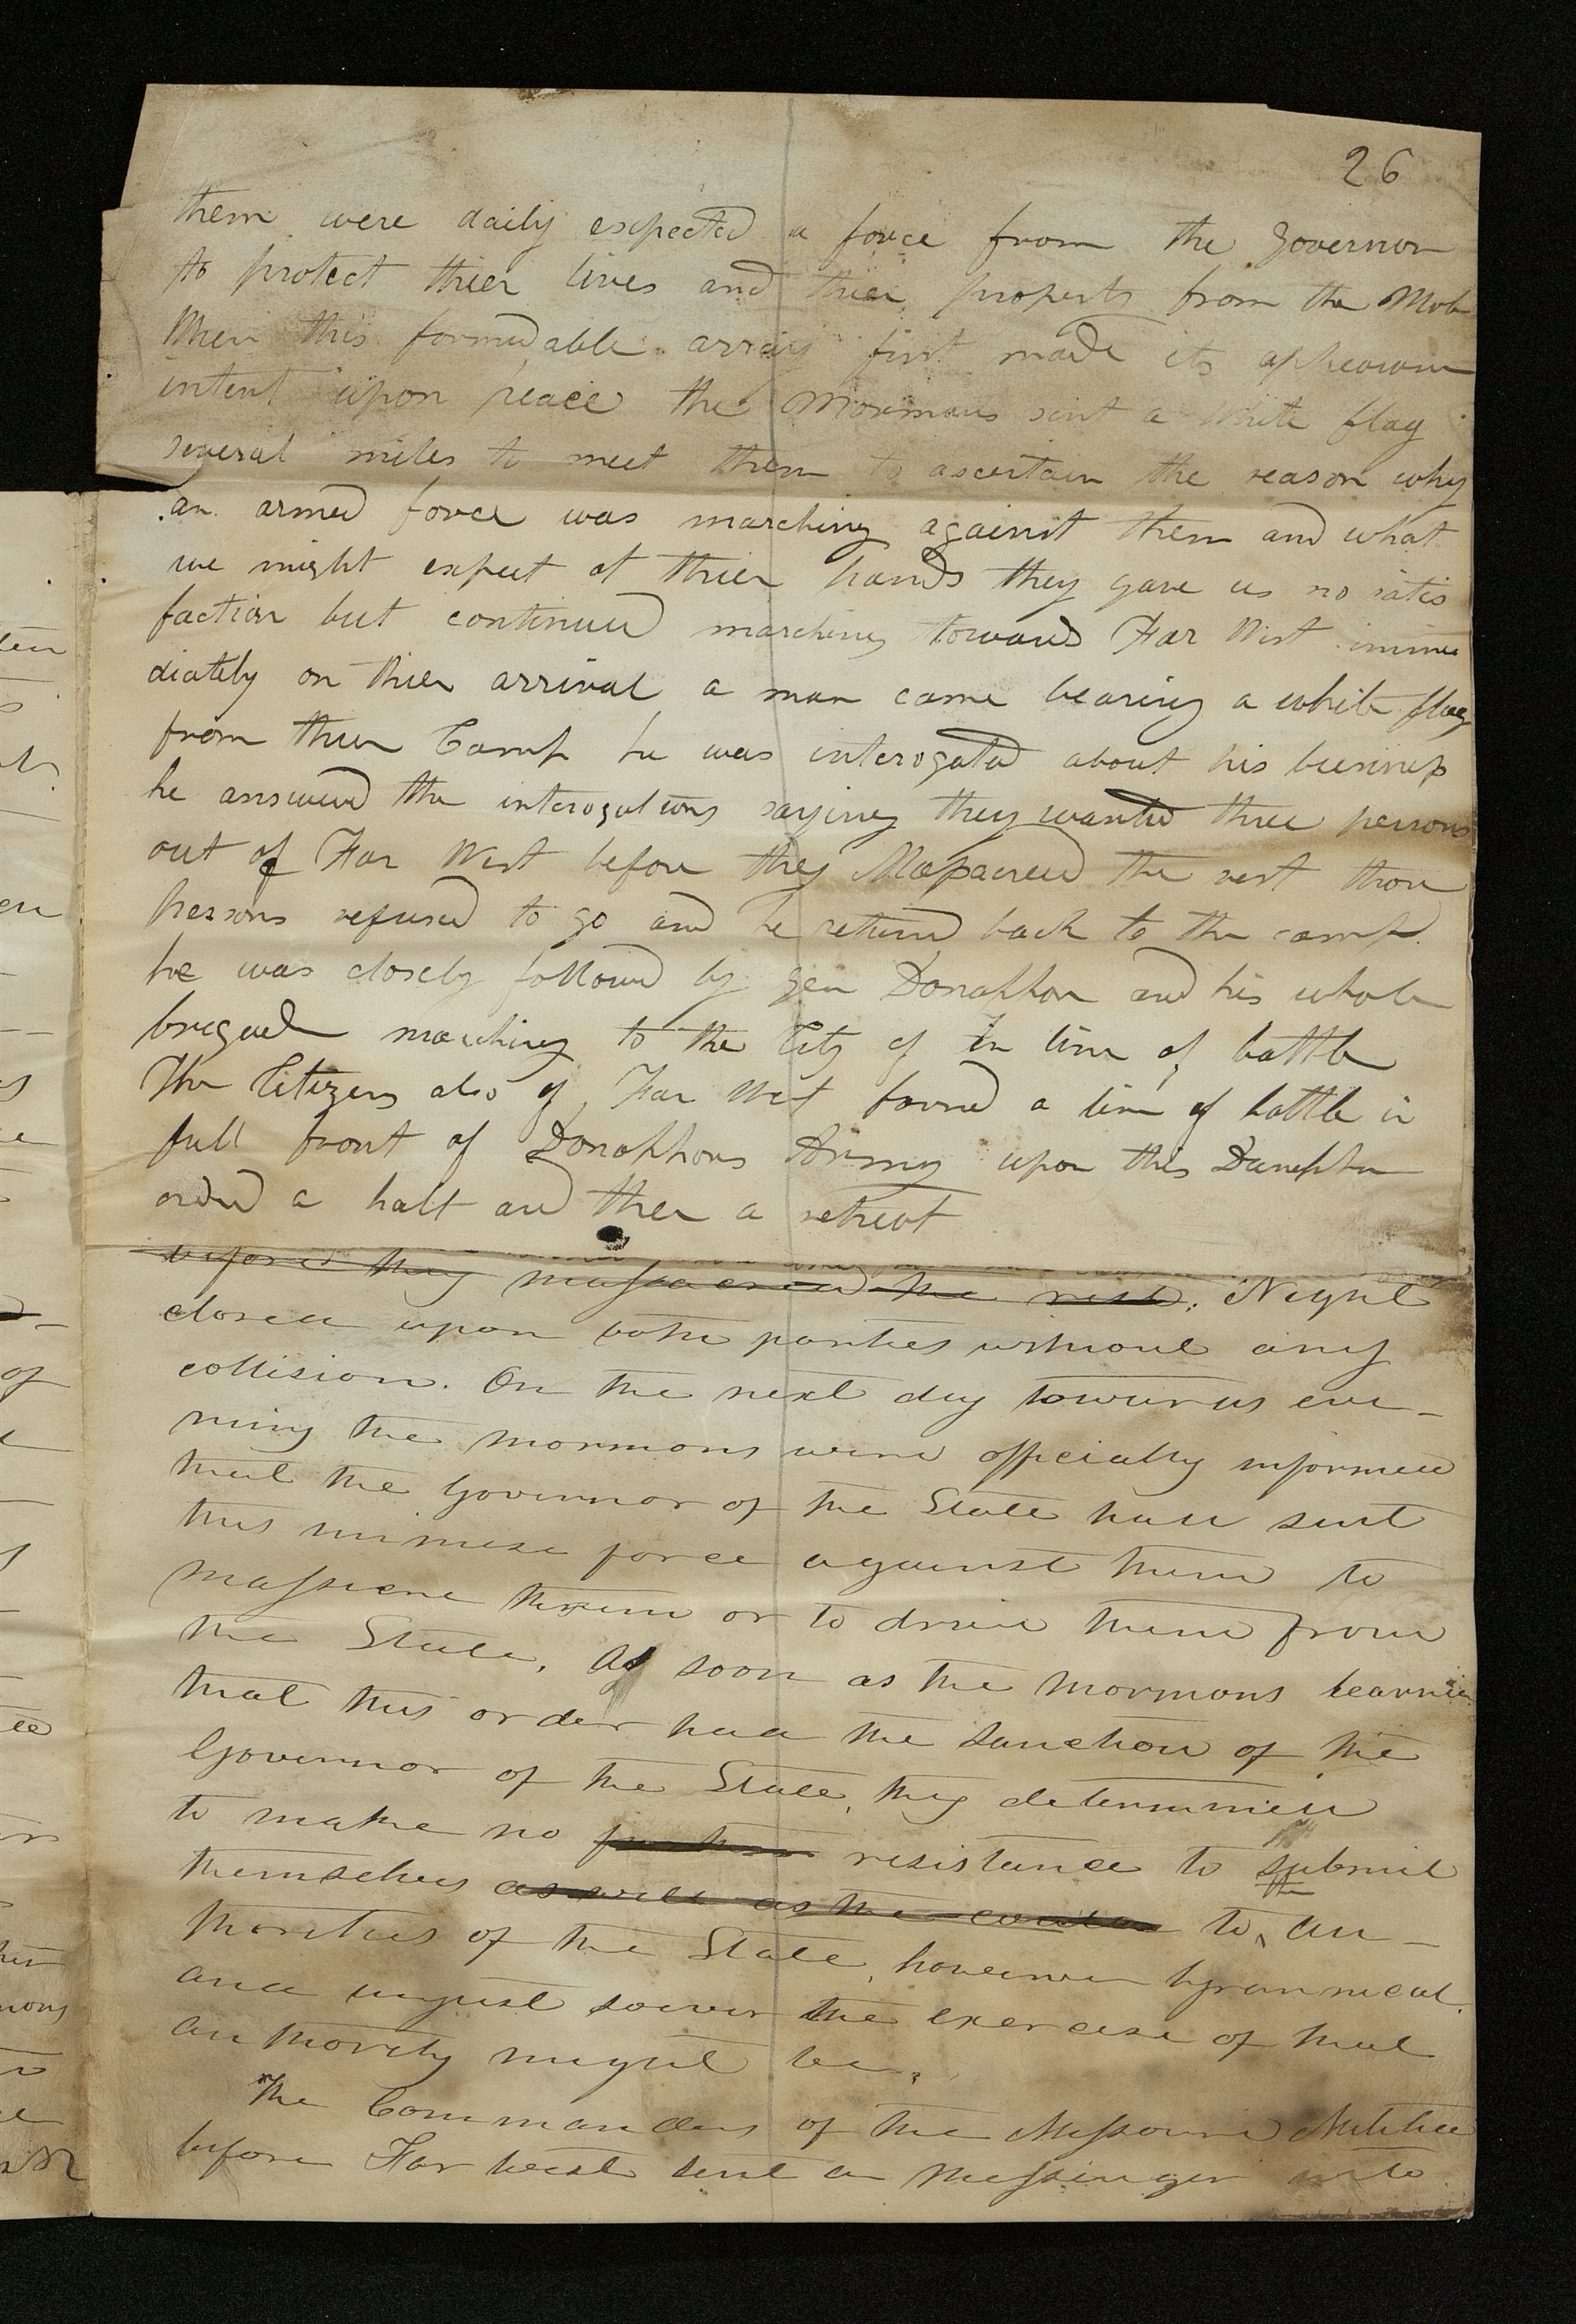 26
them were daily expected a force from the Governor
to protect thier lives and thier property from the Mob
When this formidable array first made its appearance
intent upon peace the Mormons sent a white flag
several miles to meet them to ascertain the reason why
an armed force was marching against them and what
we might expect at thier hands they gave us no satis
faction but continued marching towards Far West imme
diately on thier arrival a man came bearing a white flag
from thier Camp he was interogated about his business
he answered the interogations saying they wanted three persons
out of Far West before they Massacreed the rest those
persons refused to go and he returned back to the camp
he was closely followed by gen Donaphan and his whole
brigade marching to the City of in line of battle
The Citizens also of Far West formed a line of battle in
full front of Donaphans Army upon this Donaphan
orderd a halt and then a retreat
before they massacred the rest. Night
closed upon both parties without any
collision. On the next day towards eve-
ning the mormons were officially informed
that the Governor of the State had sent
this immese force against them to
massacre them or to drive them from
the State. As soon as the Mormons learned
that this order had the sanction of the
Governor of the State, they determined
to make no further resistance to submit
themselves as well as the to the au-
thorities of the State, however tyrannical
and unjust soever the exercise of that
authority might be.
The Commanders of the Missouri Militia
before Far West sent a messinger into
ten
en
of
ee
mons